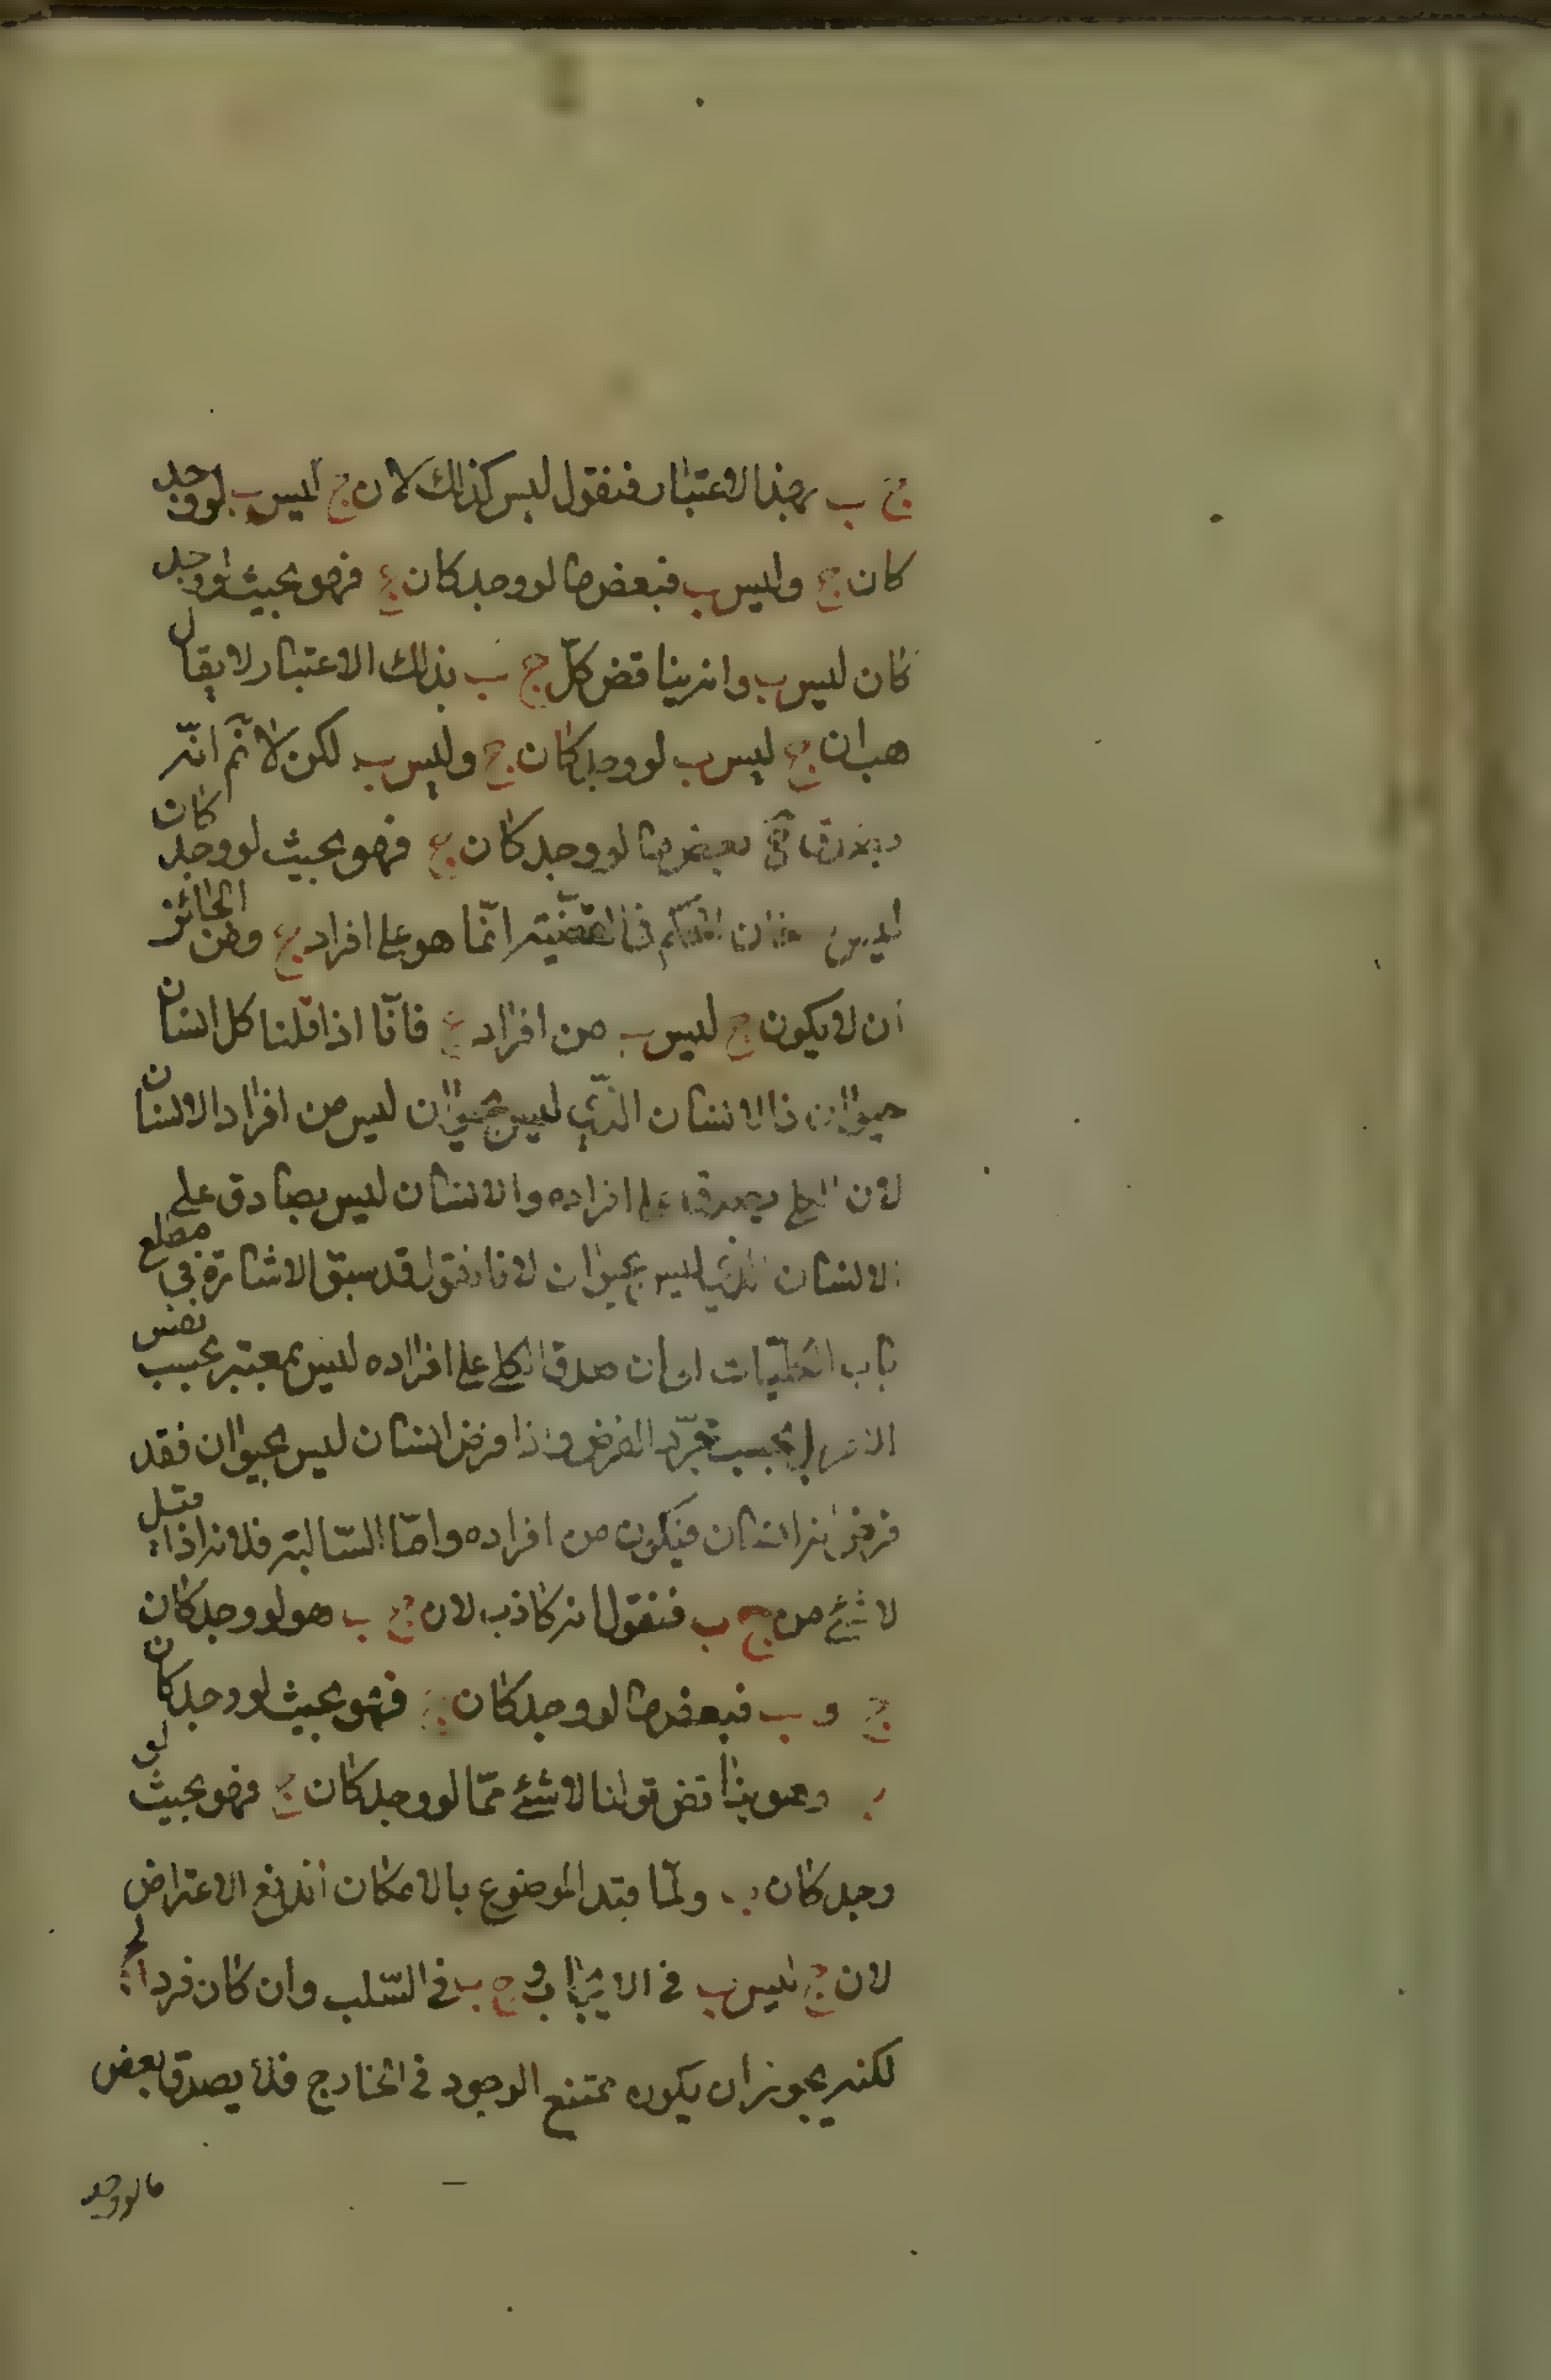 ج ب بهذا الاعتبار فنقول ليس كذلك لان ج ليس ب لو وجد
كان ج وليس ب فبعض ما لو وجد كان ج فهو بحيث لو وجد
كان ليس ب وانه يناقض كل ج ب بذلك الاعتبار لا يقال
هب ان ج ليس ب لو وجد كان ج وليس ب لكن لا نم انه
يصدق ح بعض ما لو وجد كان ج فهو بحيث لو وجد كان
ليس ب فان الحكم في القضية انما هو على افراد ج ومن الجائز
ان لا يكون ج ليس ب من افراد ج فانا اذا قلنا كل انسان
حيوان فالانسان الذي ليس بحيوان ليس من افراد الانسان
لان الكلي يصدق على افراده والانسان ليس بصادق على
الانسان الذي ليس بحيوان لانا نقول قد سبق الاشارة في مطلع
باب الكليات الى ان صدق الكلي على افراده ليس بمعتبر بحسب نفس
الامر بل بحسب مجرد الفرض واذا فرض انسان ليس بحيوان فقد
فرض انه انسان فيكون من افراده واما السالبة فلانه اذا قيل
لا شئ من ج ب فنقول انه كاذب لان ج ب هو لو وجد كان
ج و ب فبعض ما لو وجد كان ج فهو بحيث لو وجد كان
ب وهو يناقض قولنا لا شئ مما لو وجد كان ج فهو بحيث لو
وجد كان ب ولما قيد الموضوع بالامكان اندفع الاعتراض
لان ج ليس ب في الايجاب و ج ب في السلب وان كان فردا لج
لكنه يجوز ان يكون ممتنع الوجود في الخارج فلا يصدق بعض
ما لو وجد